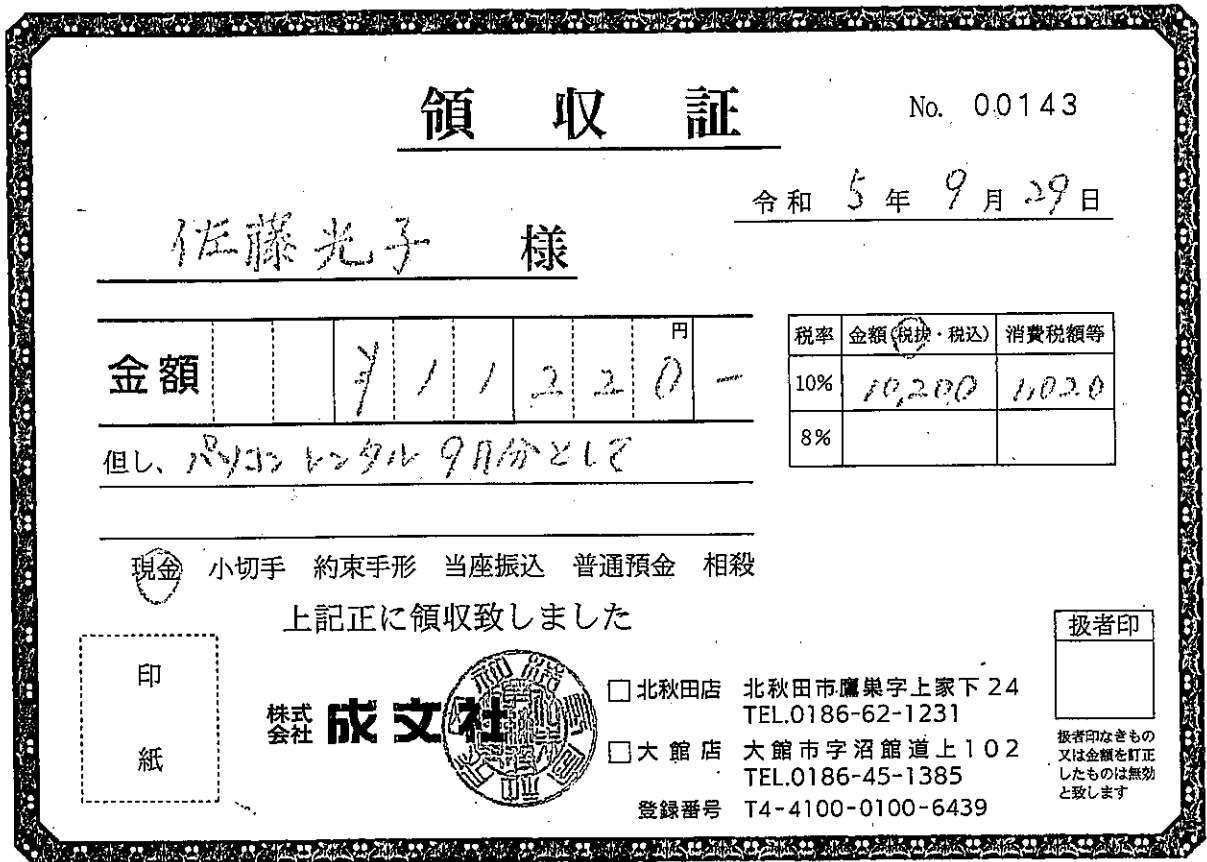 領収証
No. 00143
令和 5年 9月 29日
佐藤光子 様
金額 ¥11220円-
税率 金額(税抜・税込) 消費税額等
10% 10,200 1,020
8%
但し、パソコンレンタル9月分として
現金 小切手 約束手形 当座振込 普通預金 相殺
上記正に領収致しました
印紙
株式会社 成文社
□北秋田店 北秋田市鷹巣字上家下24
TEL.0186-62-1231
□大館店 大館市字沼館道上102
TEL.0186-45-1385
登録番号 T4-4100-0100-6439
扱者印
扱者印なきもの
又は金額を訂正
したものは無効
と致します